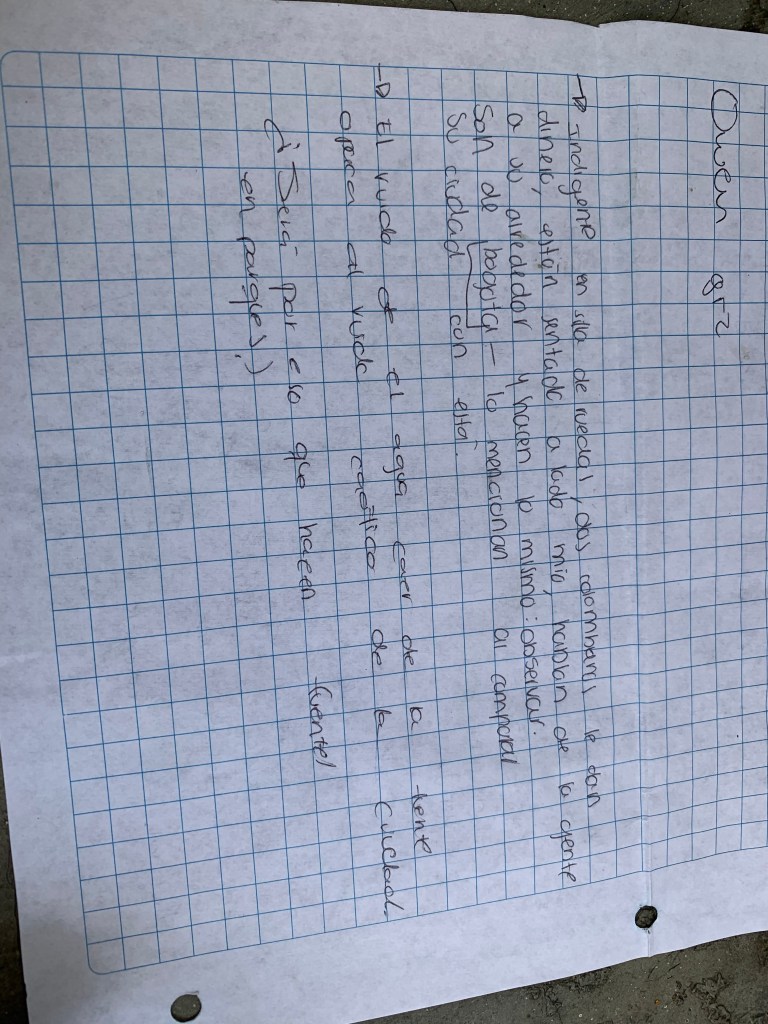 Owen grz
→ Indigente en silla de ruedas, dos colombians le dan
dinero, están sentado a lado mio, hablan de la gente
a su alrededor y hacen lo mismo: observar.
Son de bogota - lo mencionan al comparar
su ciudad con esta.
→ El ruido de el agua caer de la fente
opaca al ruido caótico de la cuidad.
¿Será por eso que hacen fuentes
en parques?